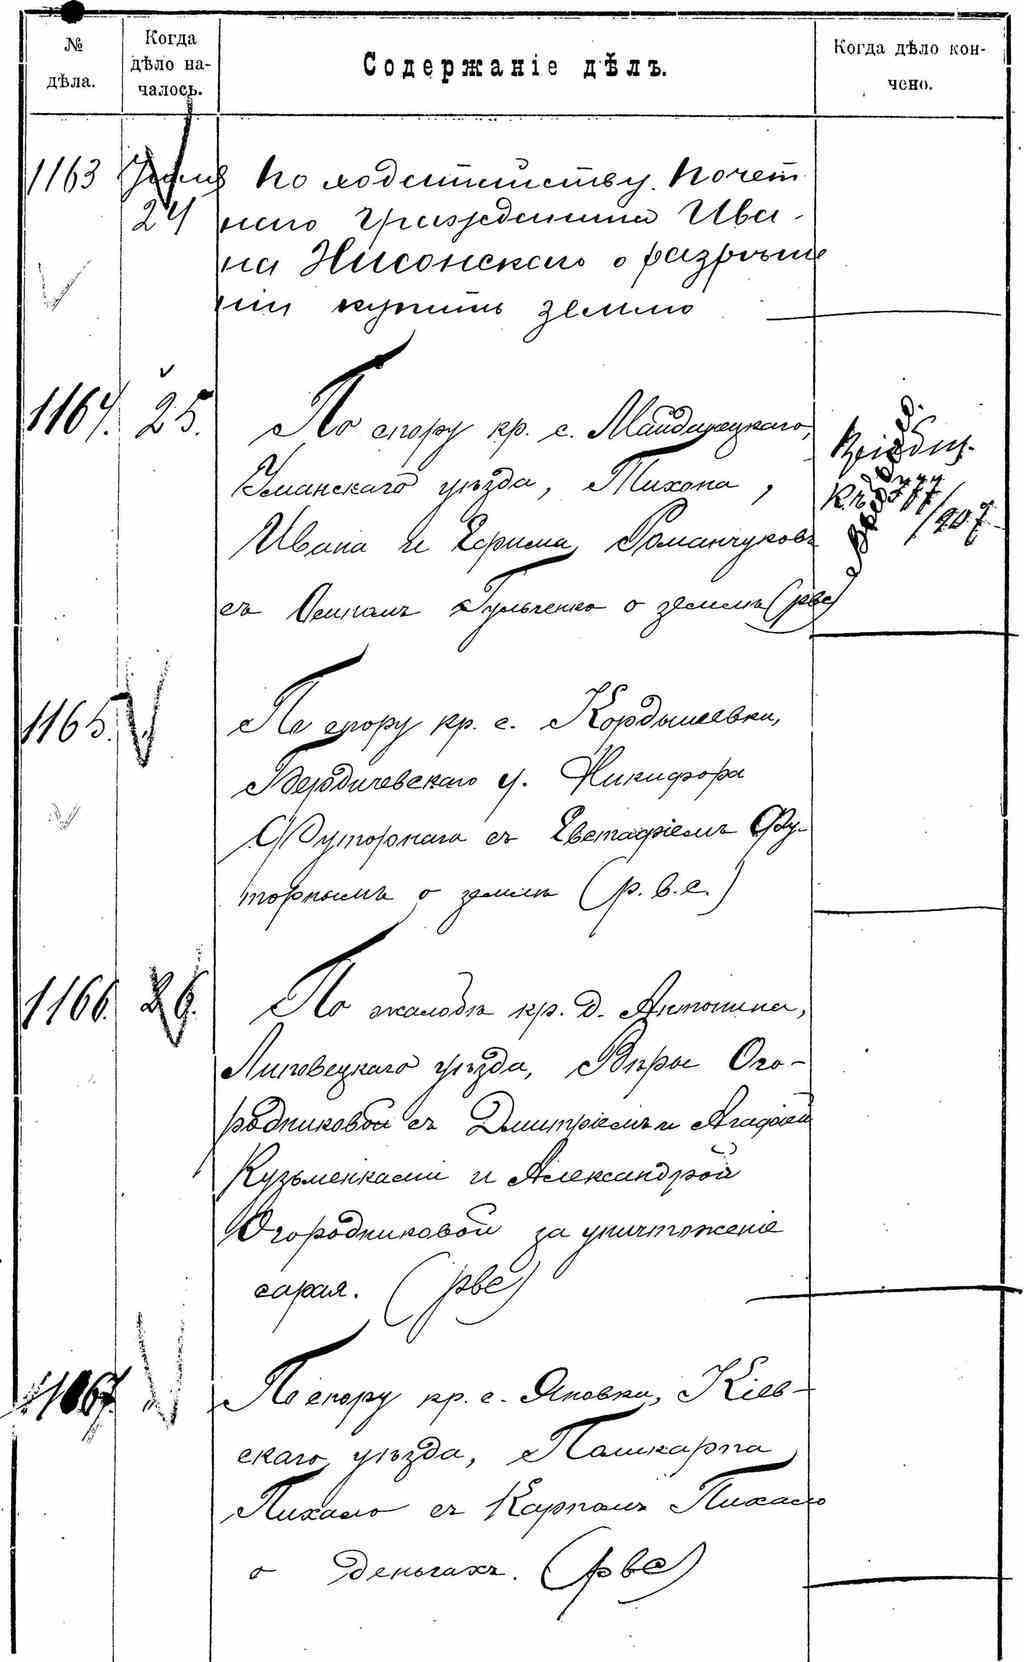 № дѣла.
Когда дѣло на-
чалось.
Содержаніе дѣлъ.
Когда дѣло кон-
чено.
1163 Іюля 24 По ходатайству Почет
наго гражданина Ива-
на Нисонскаго о разрѣше
ніи купить землю
1164. 25. По спору кр. с. Майданецкаго,
Уманскаго уѣзда, Тихона,
Ивана и Ефима Романчуковъ
съ Осипомъ Гульченко о землѣ (рвс)
къ 777/907
1165. По спору кр. с. Кордышевки,
Бердичевскаго у. Никифора
Футорнаго съ Евстафіемъ Фу-
торнымъ о землѣ (р.в.с.)
1166. 26. По жалобѣ кр. д. Антонина,
Липовецкаго уѣзда, Вѣры Ого-
родниковой съ Дмитріемъ и Агафіей
Кузьменками и Александрой
Огородниковой за уничтоженіе
сарая. (рвс)
1167. По спору кр. с. Яновки, Кіев-
скаго уѣзда, Поликарпа
Пихало съ Карпомъ Пихало
о деньгахъ. (рвс)